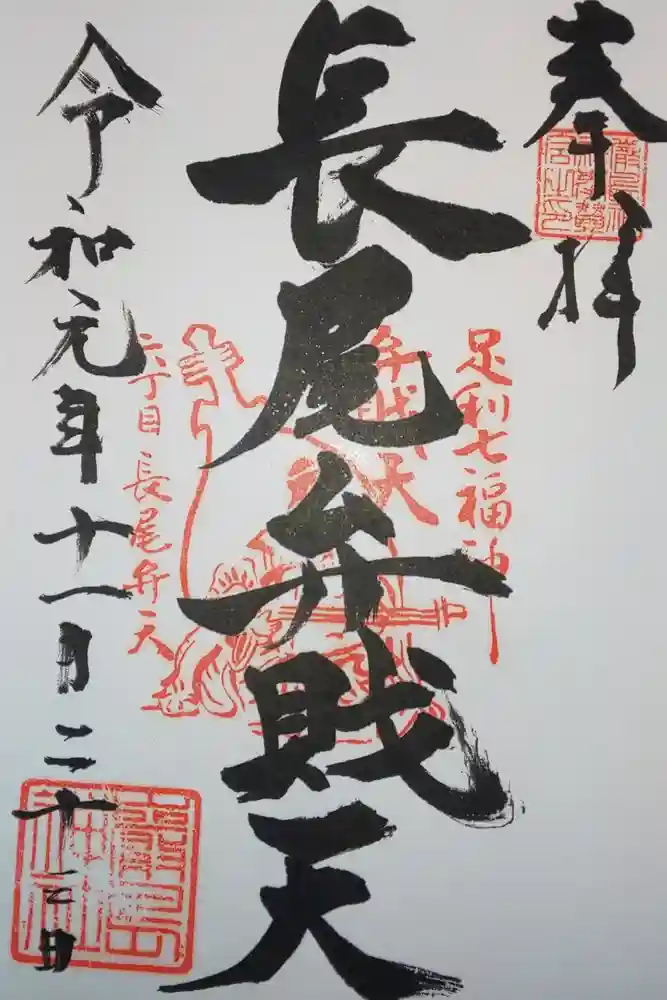 奉拝
足利七福神
長尾弁財天
六丁目長尾弁天
令和元年十一月二十三日
嚴島
神社